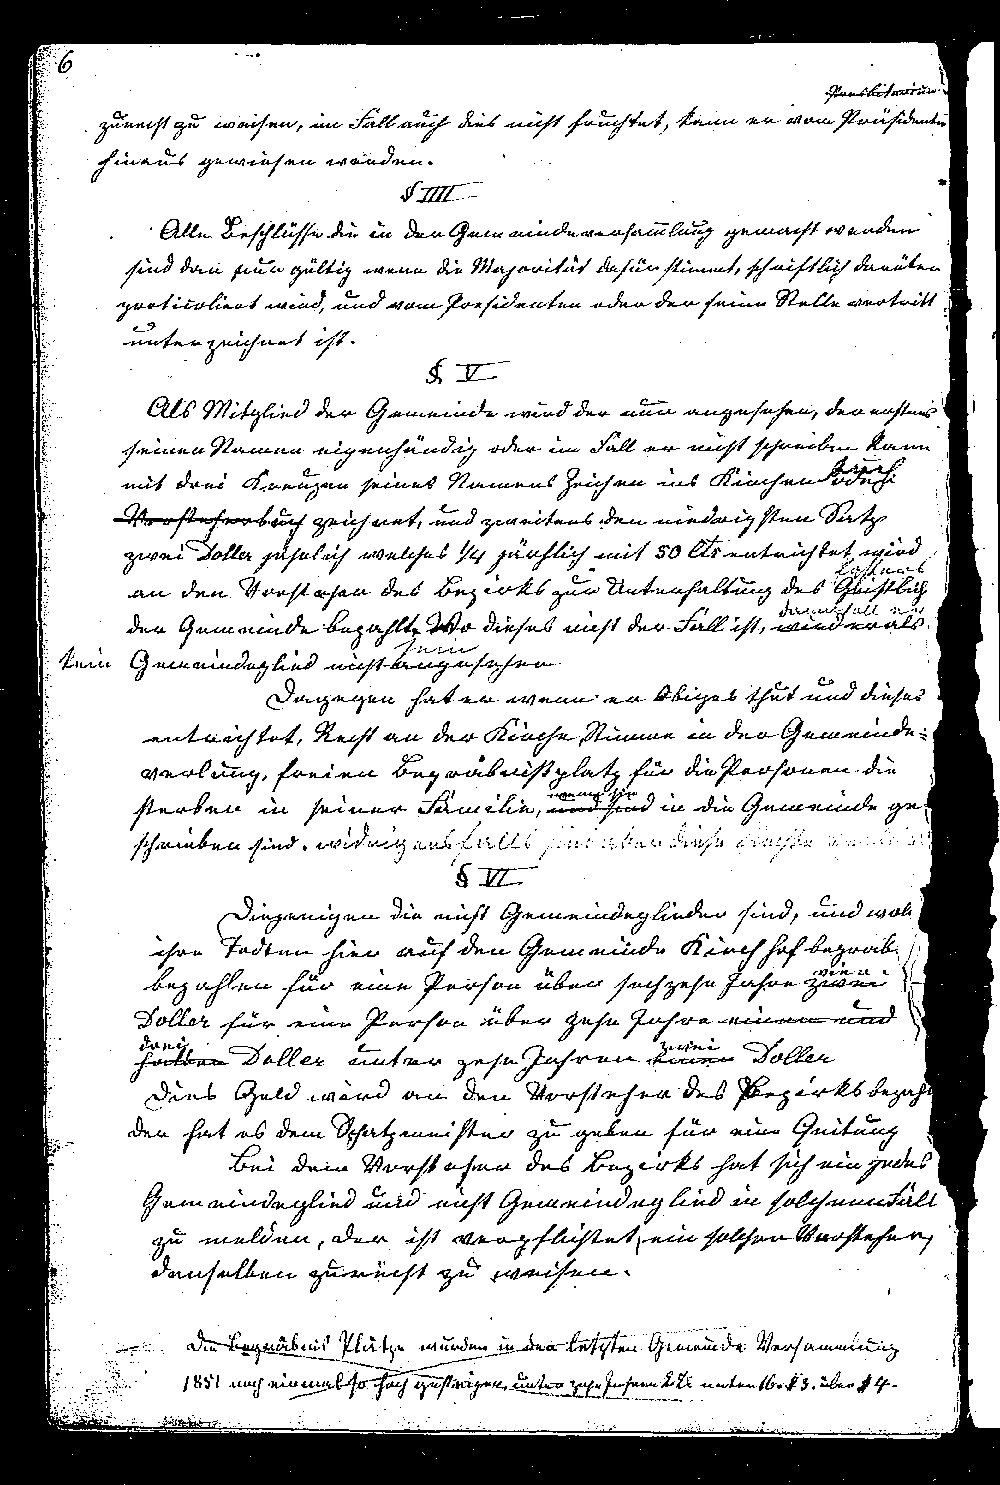 6
Presbiterium
zurecht zu weisen, im Fall auch dies nicht fruchtet, kann er vom Präsidenten
hinaus gewiesen werden.
§ IIII
Alle Beschlüsse die in der Gemeindeversamlung gemacht werden
sind dan nur gültig wenn die Majorität dafür stimmt, schriftlich darüber
proticoliert wird, und vom Presidenten oder der seine Stelle vertritt
unterzeichnet ist.
§ V
Als Mitglied der Gemeinde wird der nur angesehen, der erstens
seinen Namen eigenhändig oder im Fall er nicht schreiben kann
mit drei Kreuzen seines Namens Zeichen ins Kirchen buch
Vorsteherbuch zeichnet, und zweitens den niedrigsten Satz
zwei Doller jährlich welches 1/4 järhlich mit 50 Cts entrichtet wird
an den Vorsteher des Bezirks zur Unterhaltung des Geistlich
der Gemeinde bezahlt. Wo dieses nicht der Fall ist, wird er als
kein Gemeindeglied nicht angesehen
sein
Dagegen hat er wenn er Obiges thut und dieses
entrichtet, Recht an der Kirche, Stimme in der Gemeinde-
verlung, freien Begräbnißplatz für die Personen die
sterben in seiner Familie, und sind in die Gemeinde ge-
wenn sie
schrieben sind. widrigensfalls sind aber diese Rechte
§ VI
Diejenigen die nicht Gemeindeglieder sind, und woll
ihre Todten hier auf den Gemeinde Kirchhof begrab
bezahlen für eine Person über sechzehn Jahre zwei
vier
Doller für eine Person über zehn Jahre einen und
drei
halben Doller unter zehn Jahren einen Doller
zwei
Dies Geld wird an den Vorsteher des Bezirks bezahl
der hat es dem Schatzmeister zu geben für eine Quitung
Bei dem Vorsteher des Bezirks hat sich ein jedes
Gemeindeglied und nicht Gemeindeglied in solchem Fall
zu melden, der ist verpflichtet, ein solcher Vorsteher,
denselben zurecht zu weisen.
Die Begräbnis Plätze wurden in der letzten Gemeinde Versammlung
1851 noch einmal so hoch gestiegen, unter zehn Jahren $2. unter 16. $3. über $4.